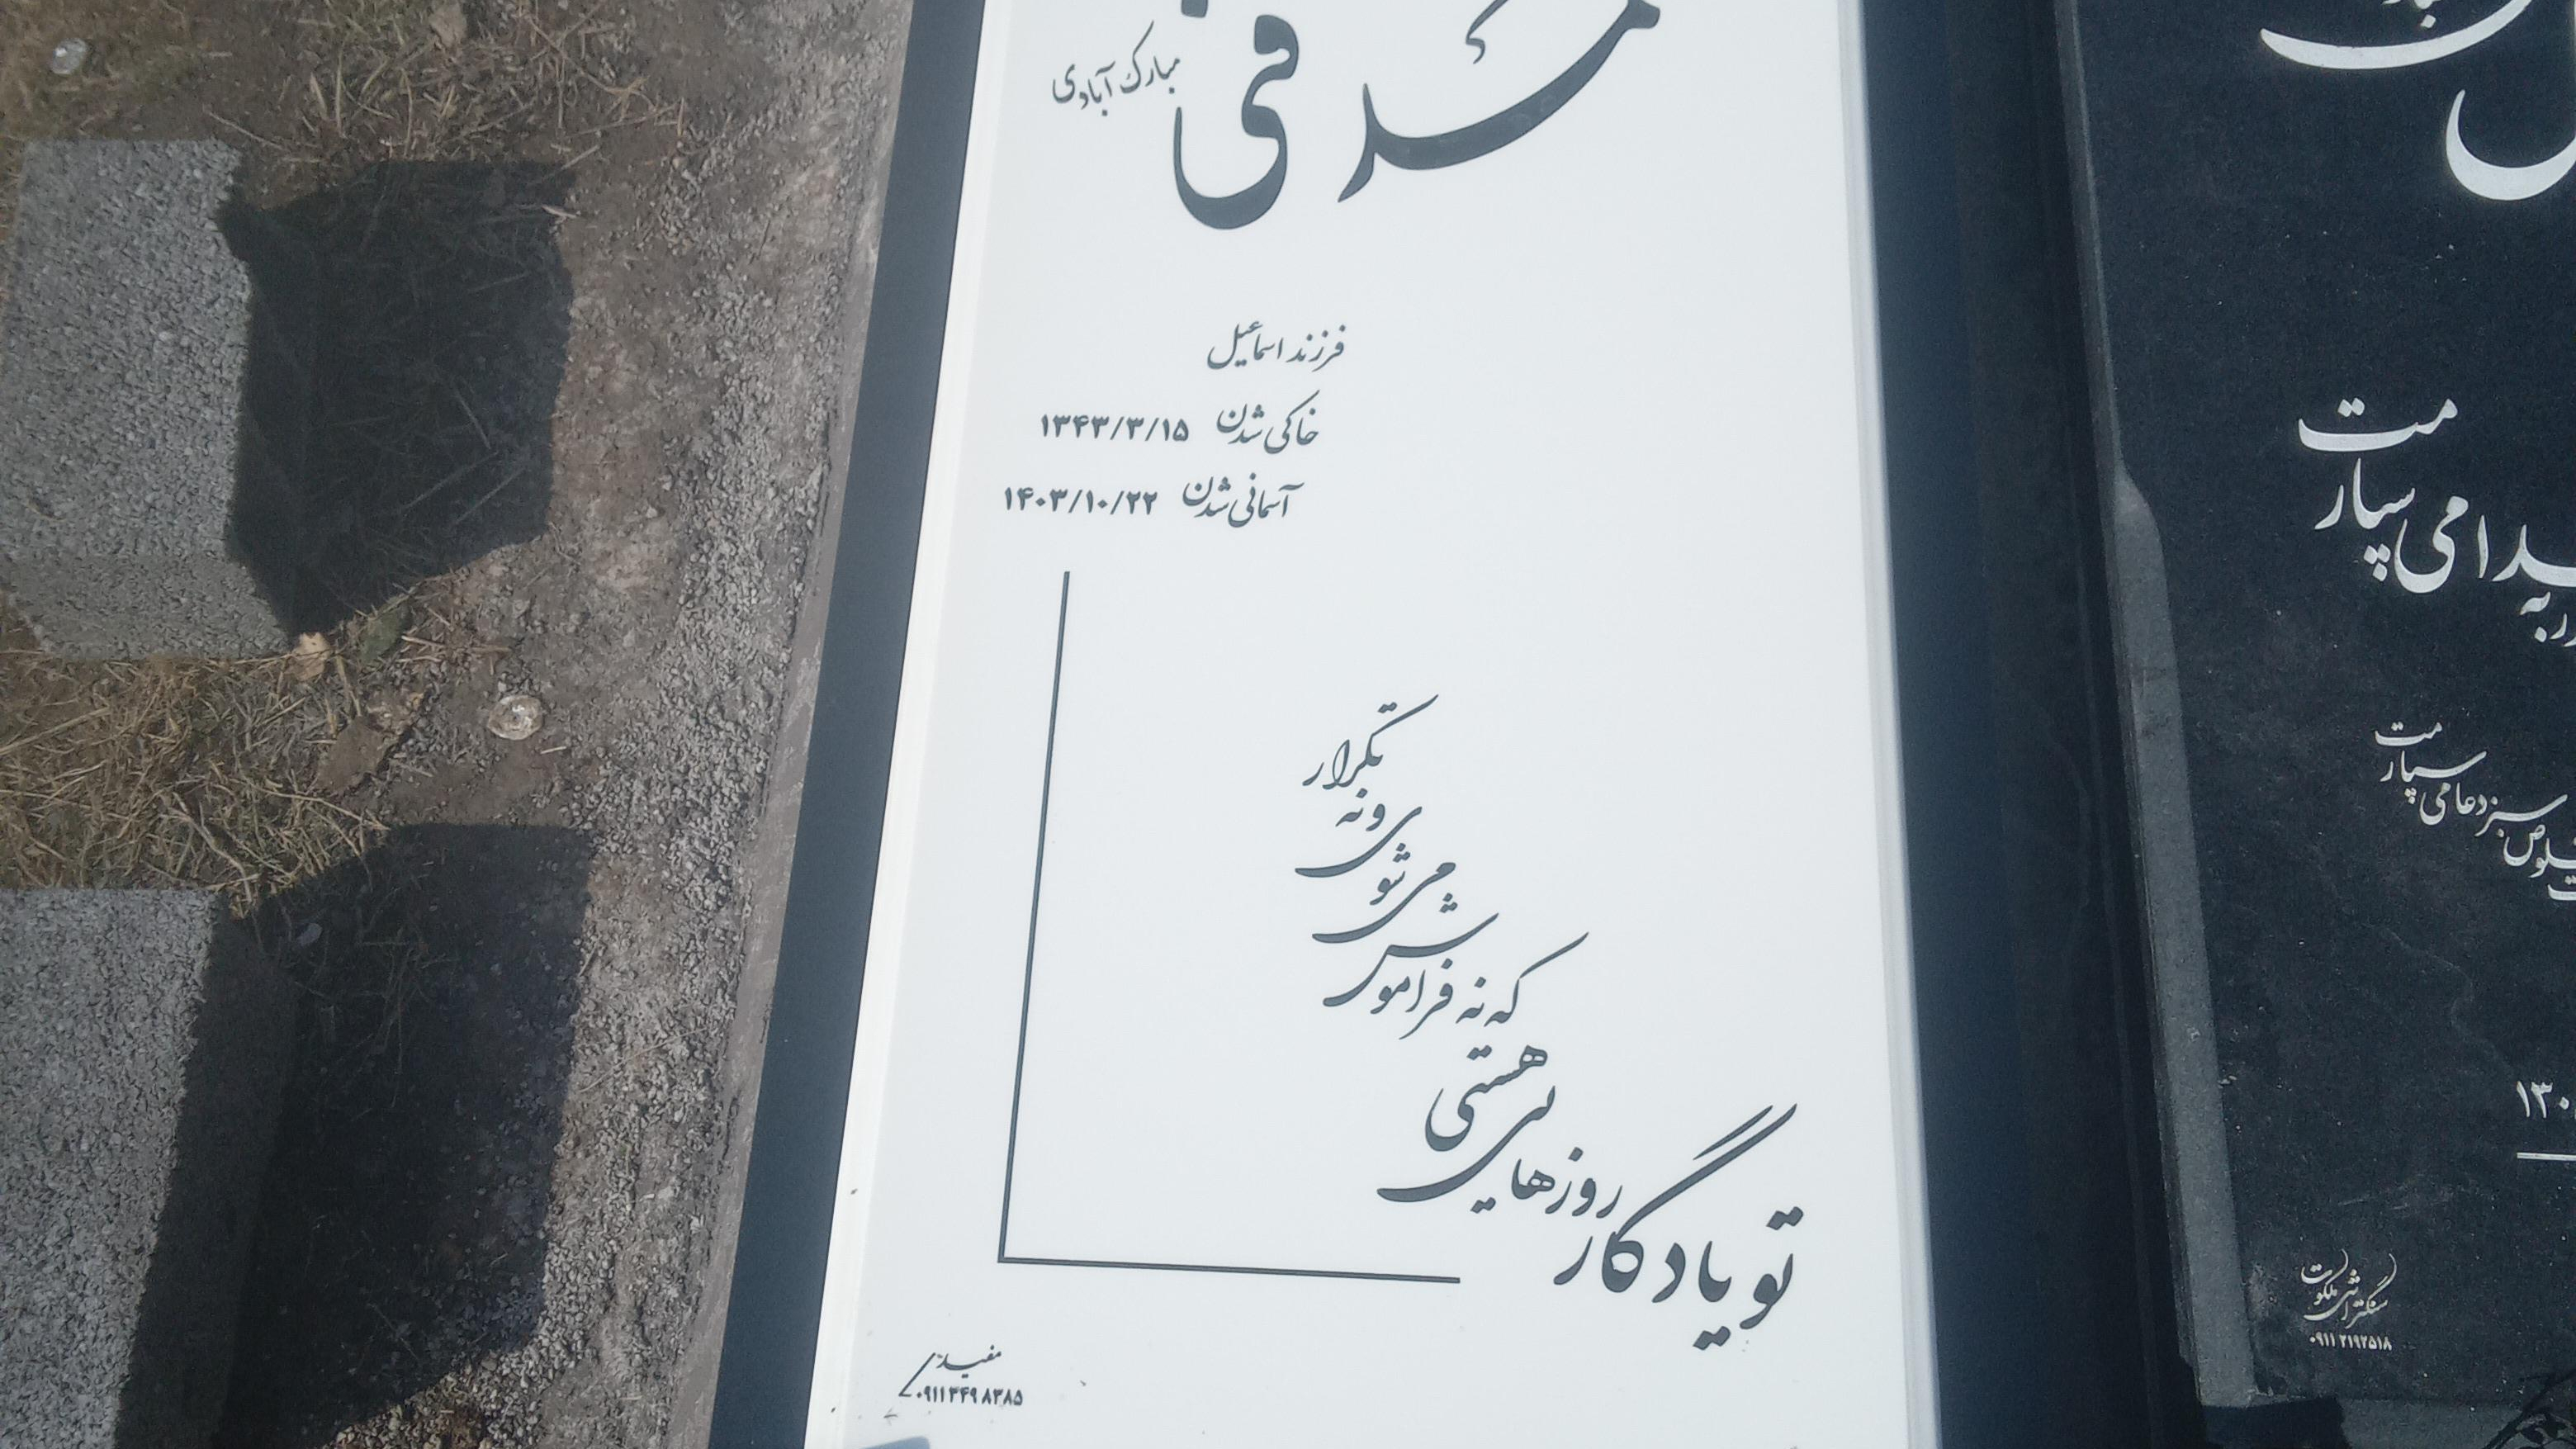 مبارک آبادی
فرزند اسماعیل
خاکی شدن ۱۳۴۳/۳/۱۵
آسمانی شدن ۱۴۰۳/۱۰/۲۲
تو یادگار
روزهایی هستی
که نه فراموش
می شوی و نه
تکرار
مفیدی
۰۹۱۱ ۳۴۹ ۸۳۸۵
مت
می سپارمت
دعا می سپارمت
سنگتراشی ملکوت
۰۹۱۱ ۲۱۹۲۵۱۸